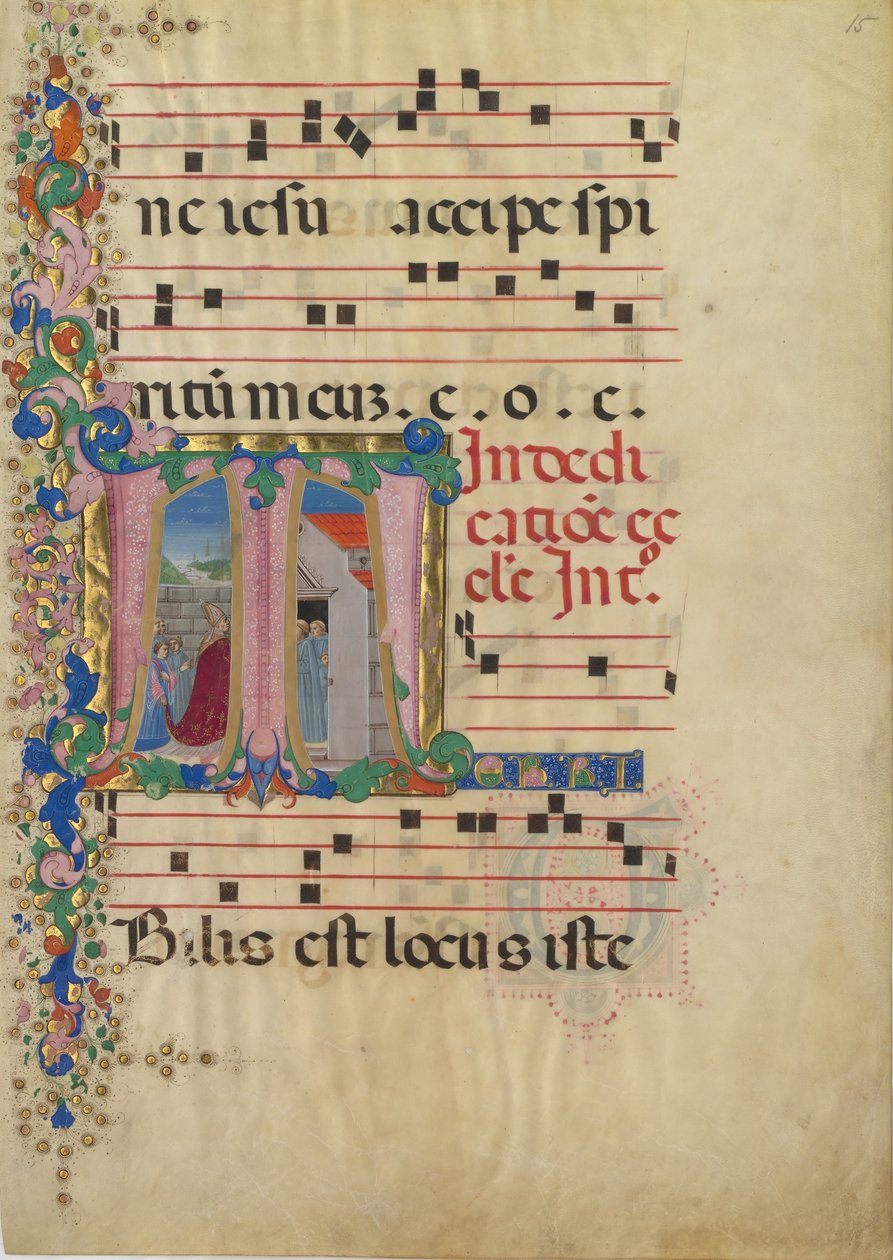 15
ne iesu accipe spi
ritũ meuʒ. e. o. e.
In dedi
catiõe ec
cl'e Intº.
TERRI
Bilis est locus iste